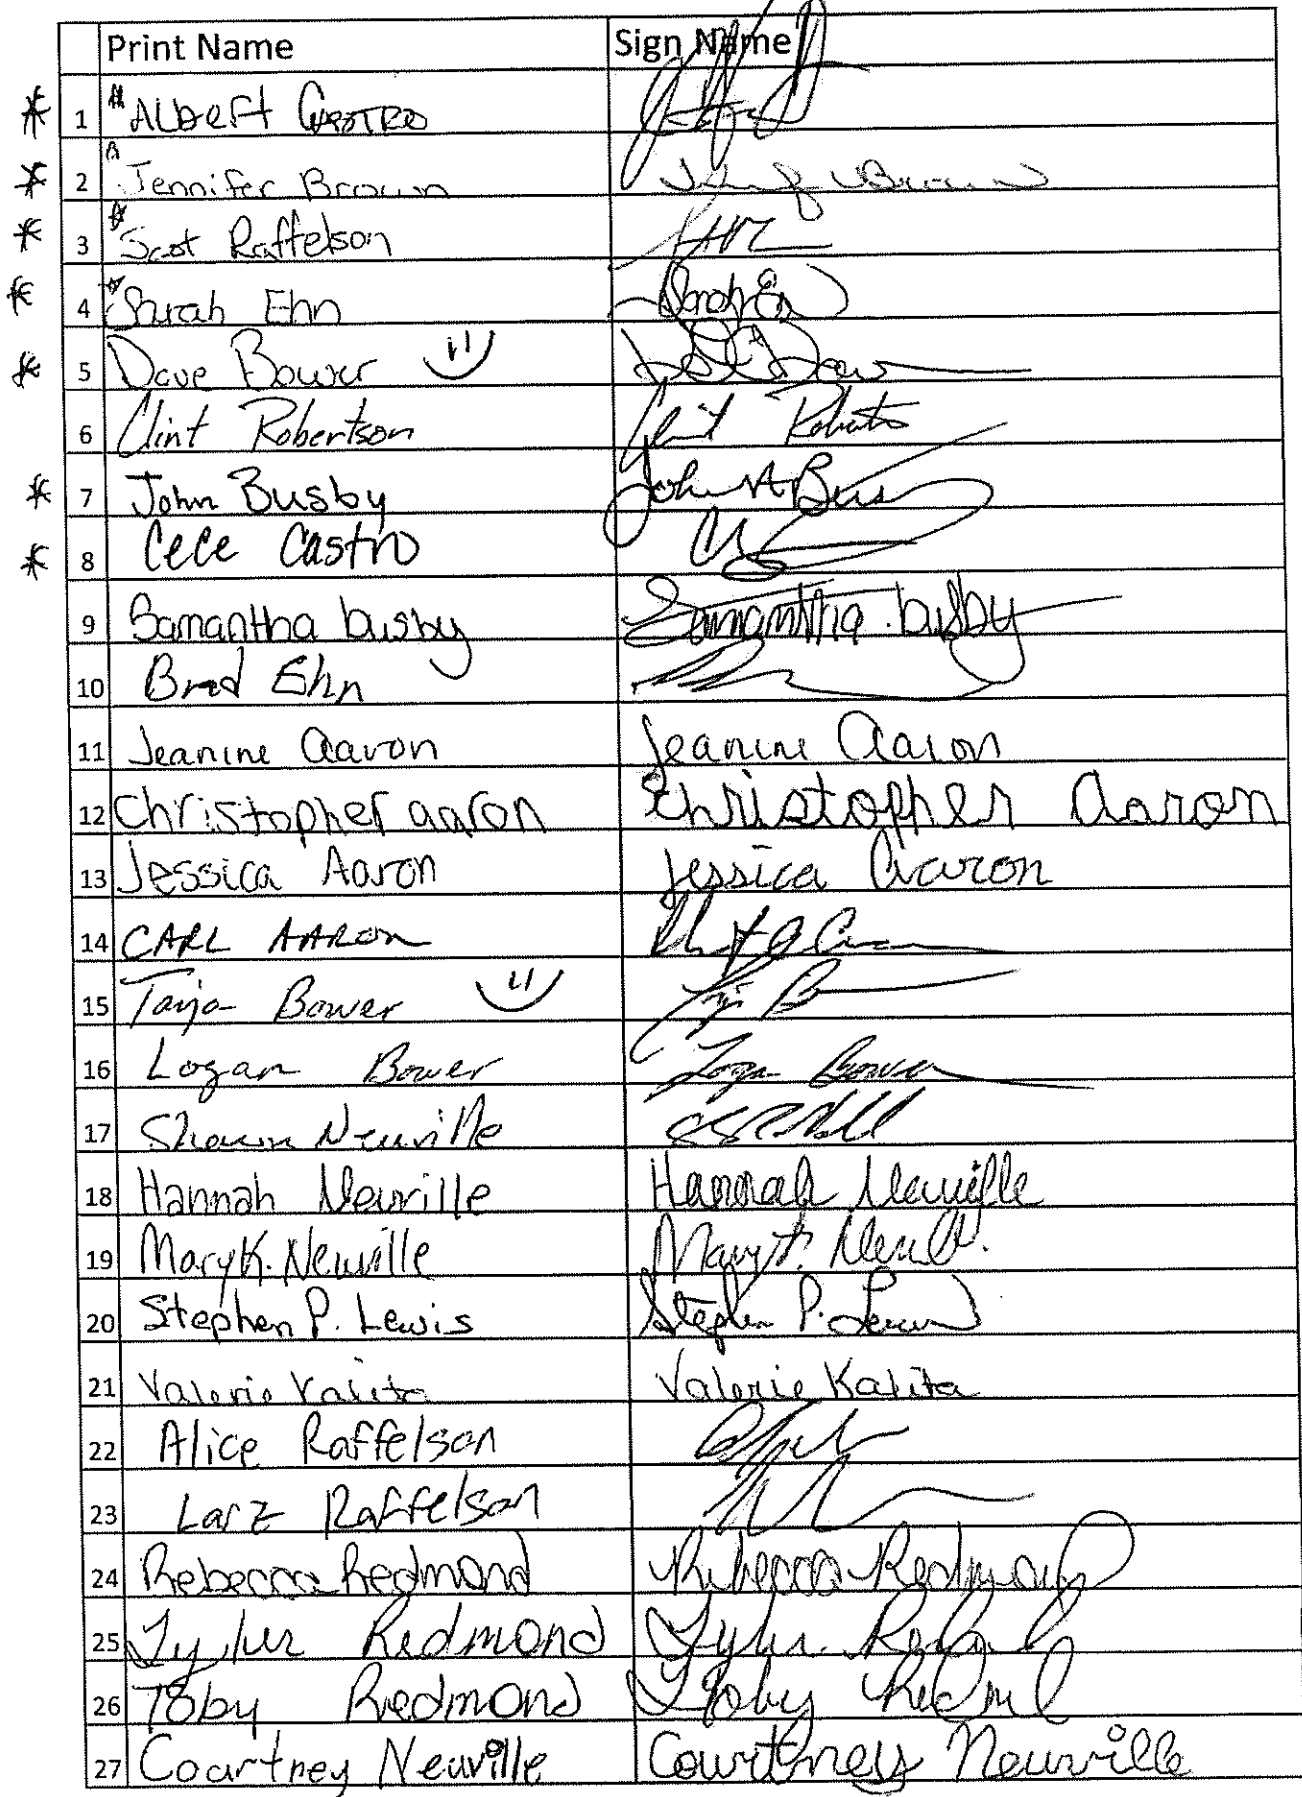 Print Name Sign Name
* 1 Albert Castro
* 2 Jennifer Brown
* 3 Scot Raffelson
* 4 Sarah Ehn Sarah Ehn
* 5 Dave Bower
6 Clint Robertson Clint
* 7 John Busby John A Bus
* 8 Cece Castro
9 Samantha busby Samantha busby
10 Brad Ehn
11 Jeanine Aaron Jeanine Aaron
12 Christopher aaron Christopher Aaron
13 Jessica Aaron Jessica Aaron
14 CARL AARON
15 Tanja Bower
16 Logan Bower Logan Bower
17 Shawn Neuville
18 Hannah Neuville Hannah Neuville
19 Mary K. Neuville Mary K.
20 Stephen P. Lewis Stephen P. Lewis
21 Valerie Kalita Valerie Kalita
22 Alice Raffelson
23 Larz Raffelson
24 Rebecca Redmond Rebecca Redmond
25 Tyler Redmond Tyler
26 Toby Redmond Toby
27 Courtney Neuville Courtney Neuville